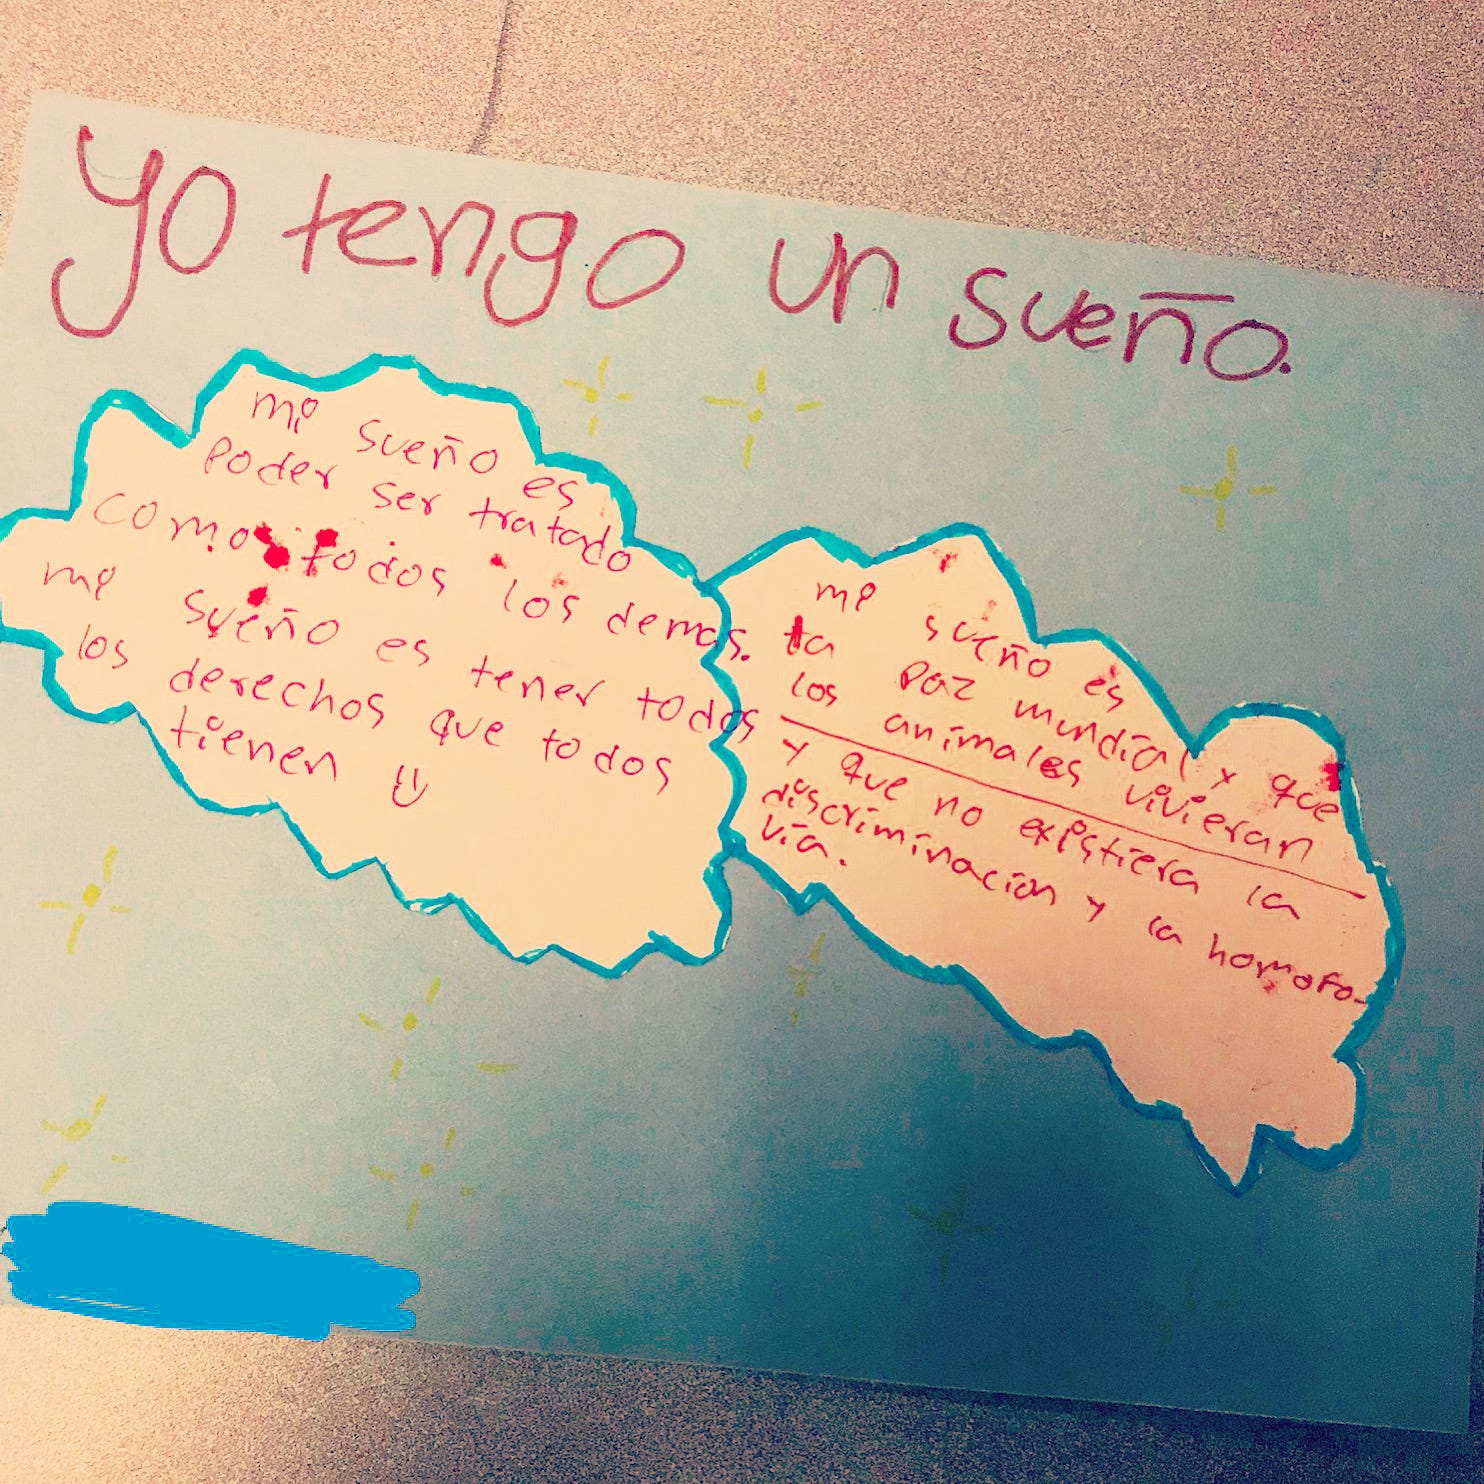 yo tengo un sueño.
mi sueño es
poder ser tratado
como todos los demas.
mi sueño es tener todos
los derechos que todos
tienen
mi sueño es
la paz mundial y que
los animales vivieran
y que no existiera la
discriminacion y la homofo-
via.